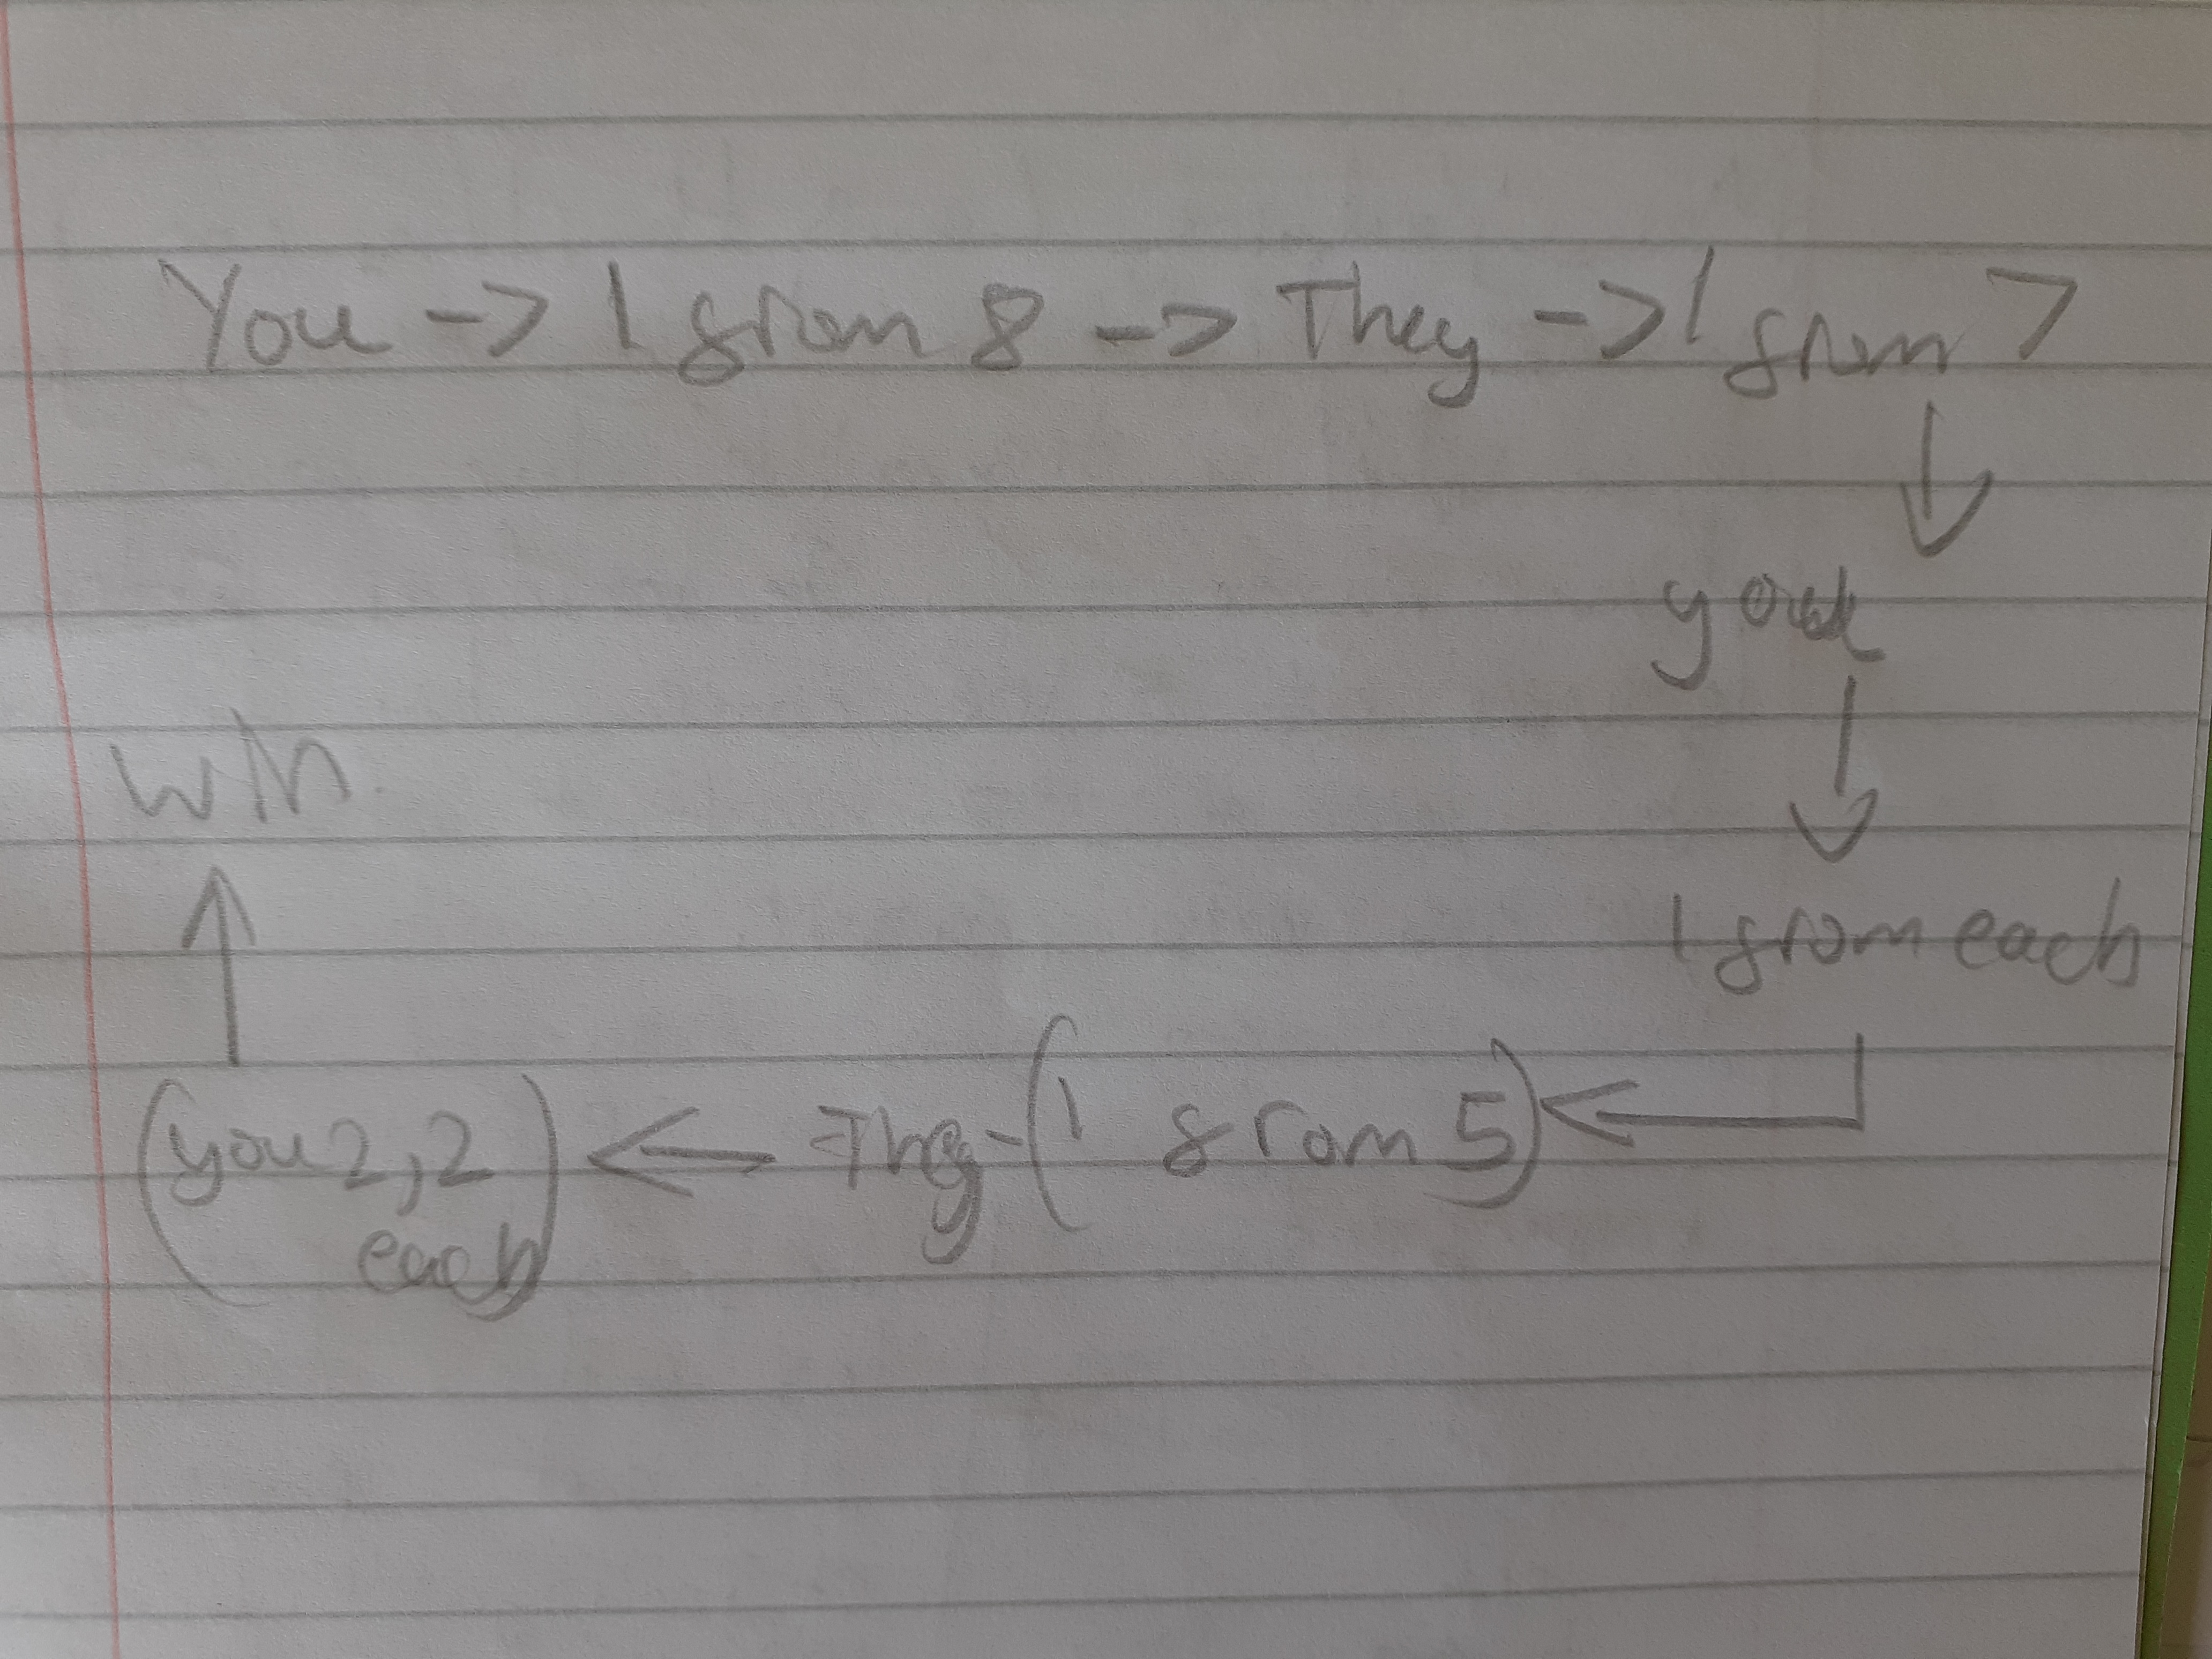 You -> 1 from 8 -> They -> 1 from 7
you
1 from each
They - (1 from 5)
(you 2,2
each)
win.